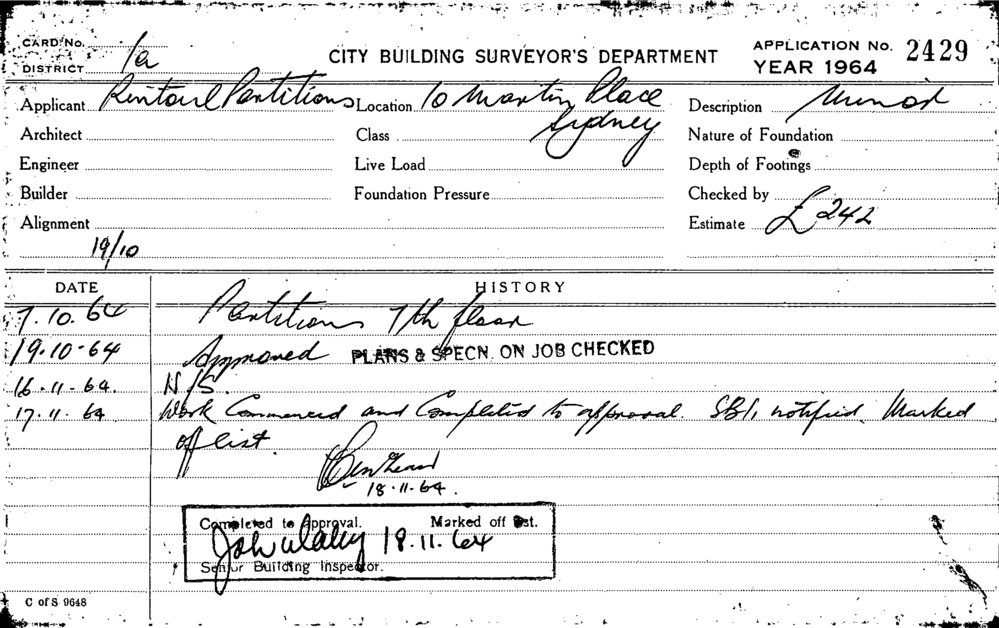 CARD No.
DISTRICT 1a
CITY BUILDING SURVEYOR'S DEPARTMENT
APPLICATION No. 2429
YEAR 1964
Applicant Rintoul Partitions Location 10 Martin Place Description Minor
Sydney
Architect Class Nature of Foundation
Engineer Live Load Depth of Footings
Builder Foundation Pressure Checked by
Alignment Estimate £242
19/10
DATE HISTORY
7.10.64 Partitions 7th floor
19.10-64 Approved PLANS & SPECN. ON JOB CHECKED
16.11-64. N/S.
17.11.64 Work Commenced and Completed to approval. SBI, notified. Marked
off list.
18.11.64.
Completed to Approval. Marked off list.
18.11.64
Senior Building Inspector.
C of S 9648